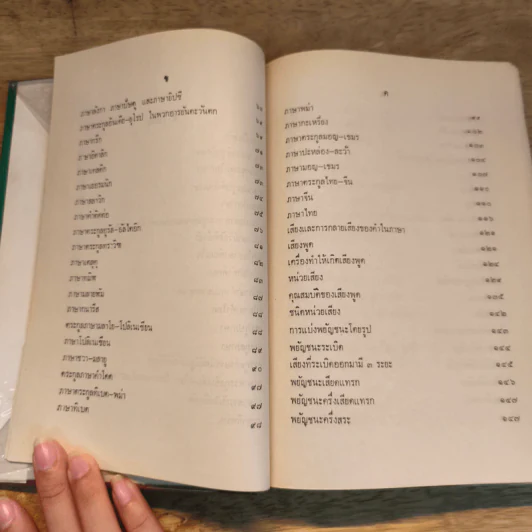 ข
ภาษาลังกา ภาษาปัษตู และภาษายิปซี
ภาษาตระกูลอินเดีย-ยุโรป ในพวกอารยันตะวันตก ๖๙
ภาษากรีก
ภาษาอิตาลิก ๗๑
ภาษาเคลติก
ภาษาเยอรมนิก
ภาษาสลาวิก
๗๕
ภาษาตระกูลยูราล-อัลไตอิก ๗๖
ภาษาตระกูลดราวิฑ ๘๑
ภาษาเตลูคู ๘๒
ภาษาทมิฬ ๘๓
๘๗
ภาษากนารีส ๘๘
ตระกูลภาษามลาโย-โปลีเนเซียน ๘๘
ภาษาโปลีเนเซียน ๘๙
ภาษาชวา-มลายู ๙๐
๙๗
ภาษาตระกูลทิเบต-พม่า ๙๗
ภาษาทิเบต ๙๘
ค
ภาษาพม่า ๙๙
ภาษากะเหรี่ยง ๑๐๒
ภาษาตระกูลมอญ-เขมร
ภาษาปะหล่อง-ละว้า ๑๐๔
ภาษามอญ-เขมร ๑๐๗
ภาษาตระกูลไทย-จีน ๑๑๐
ภาษาจีน ๑๑๐
ภาษาไทย ๑๑๖
เสียงและการกลายเสียงของคำในภาษา ๑๒๑
เสียงพูด ๑๒๑
เครื่องทำให้เกิดเสียงพูด ๑๒๔
หน่วยเสียง ๑๒๙
คุณสมบัติของเสียงพูด ๑๓๕
ชนิดหน่วยเสียง ๑๔๒
การแบ่งพยัญชนะโดยรูป ๑๔๓
พยัญชนะระเบิด ๑๔๔
เสียงที่ระเบิดออกมามี ๓ ระยะ ๑๔๕
พยัญชนะเสียดแทรก ๑๔๖
พยัญชนะครึ่งเสียดแทรก ๑๔๗
พยัญชนะครึ่งสระ ๑๔๗